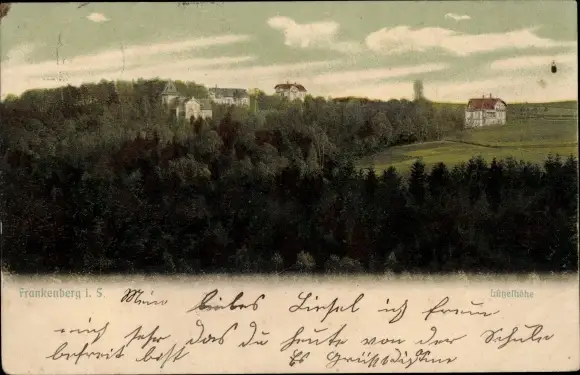 Frankenberg i. S.
Lützelhöhe
Mein liebes Liesel ich freue
mich sehr das du heute von der Schule
befreit bist Es Grüsst dich